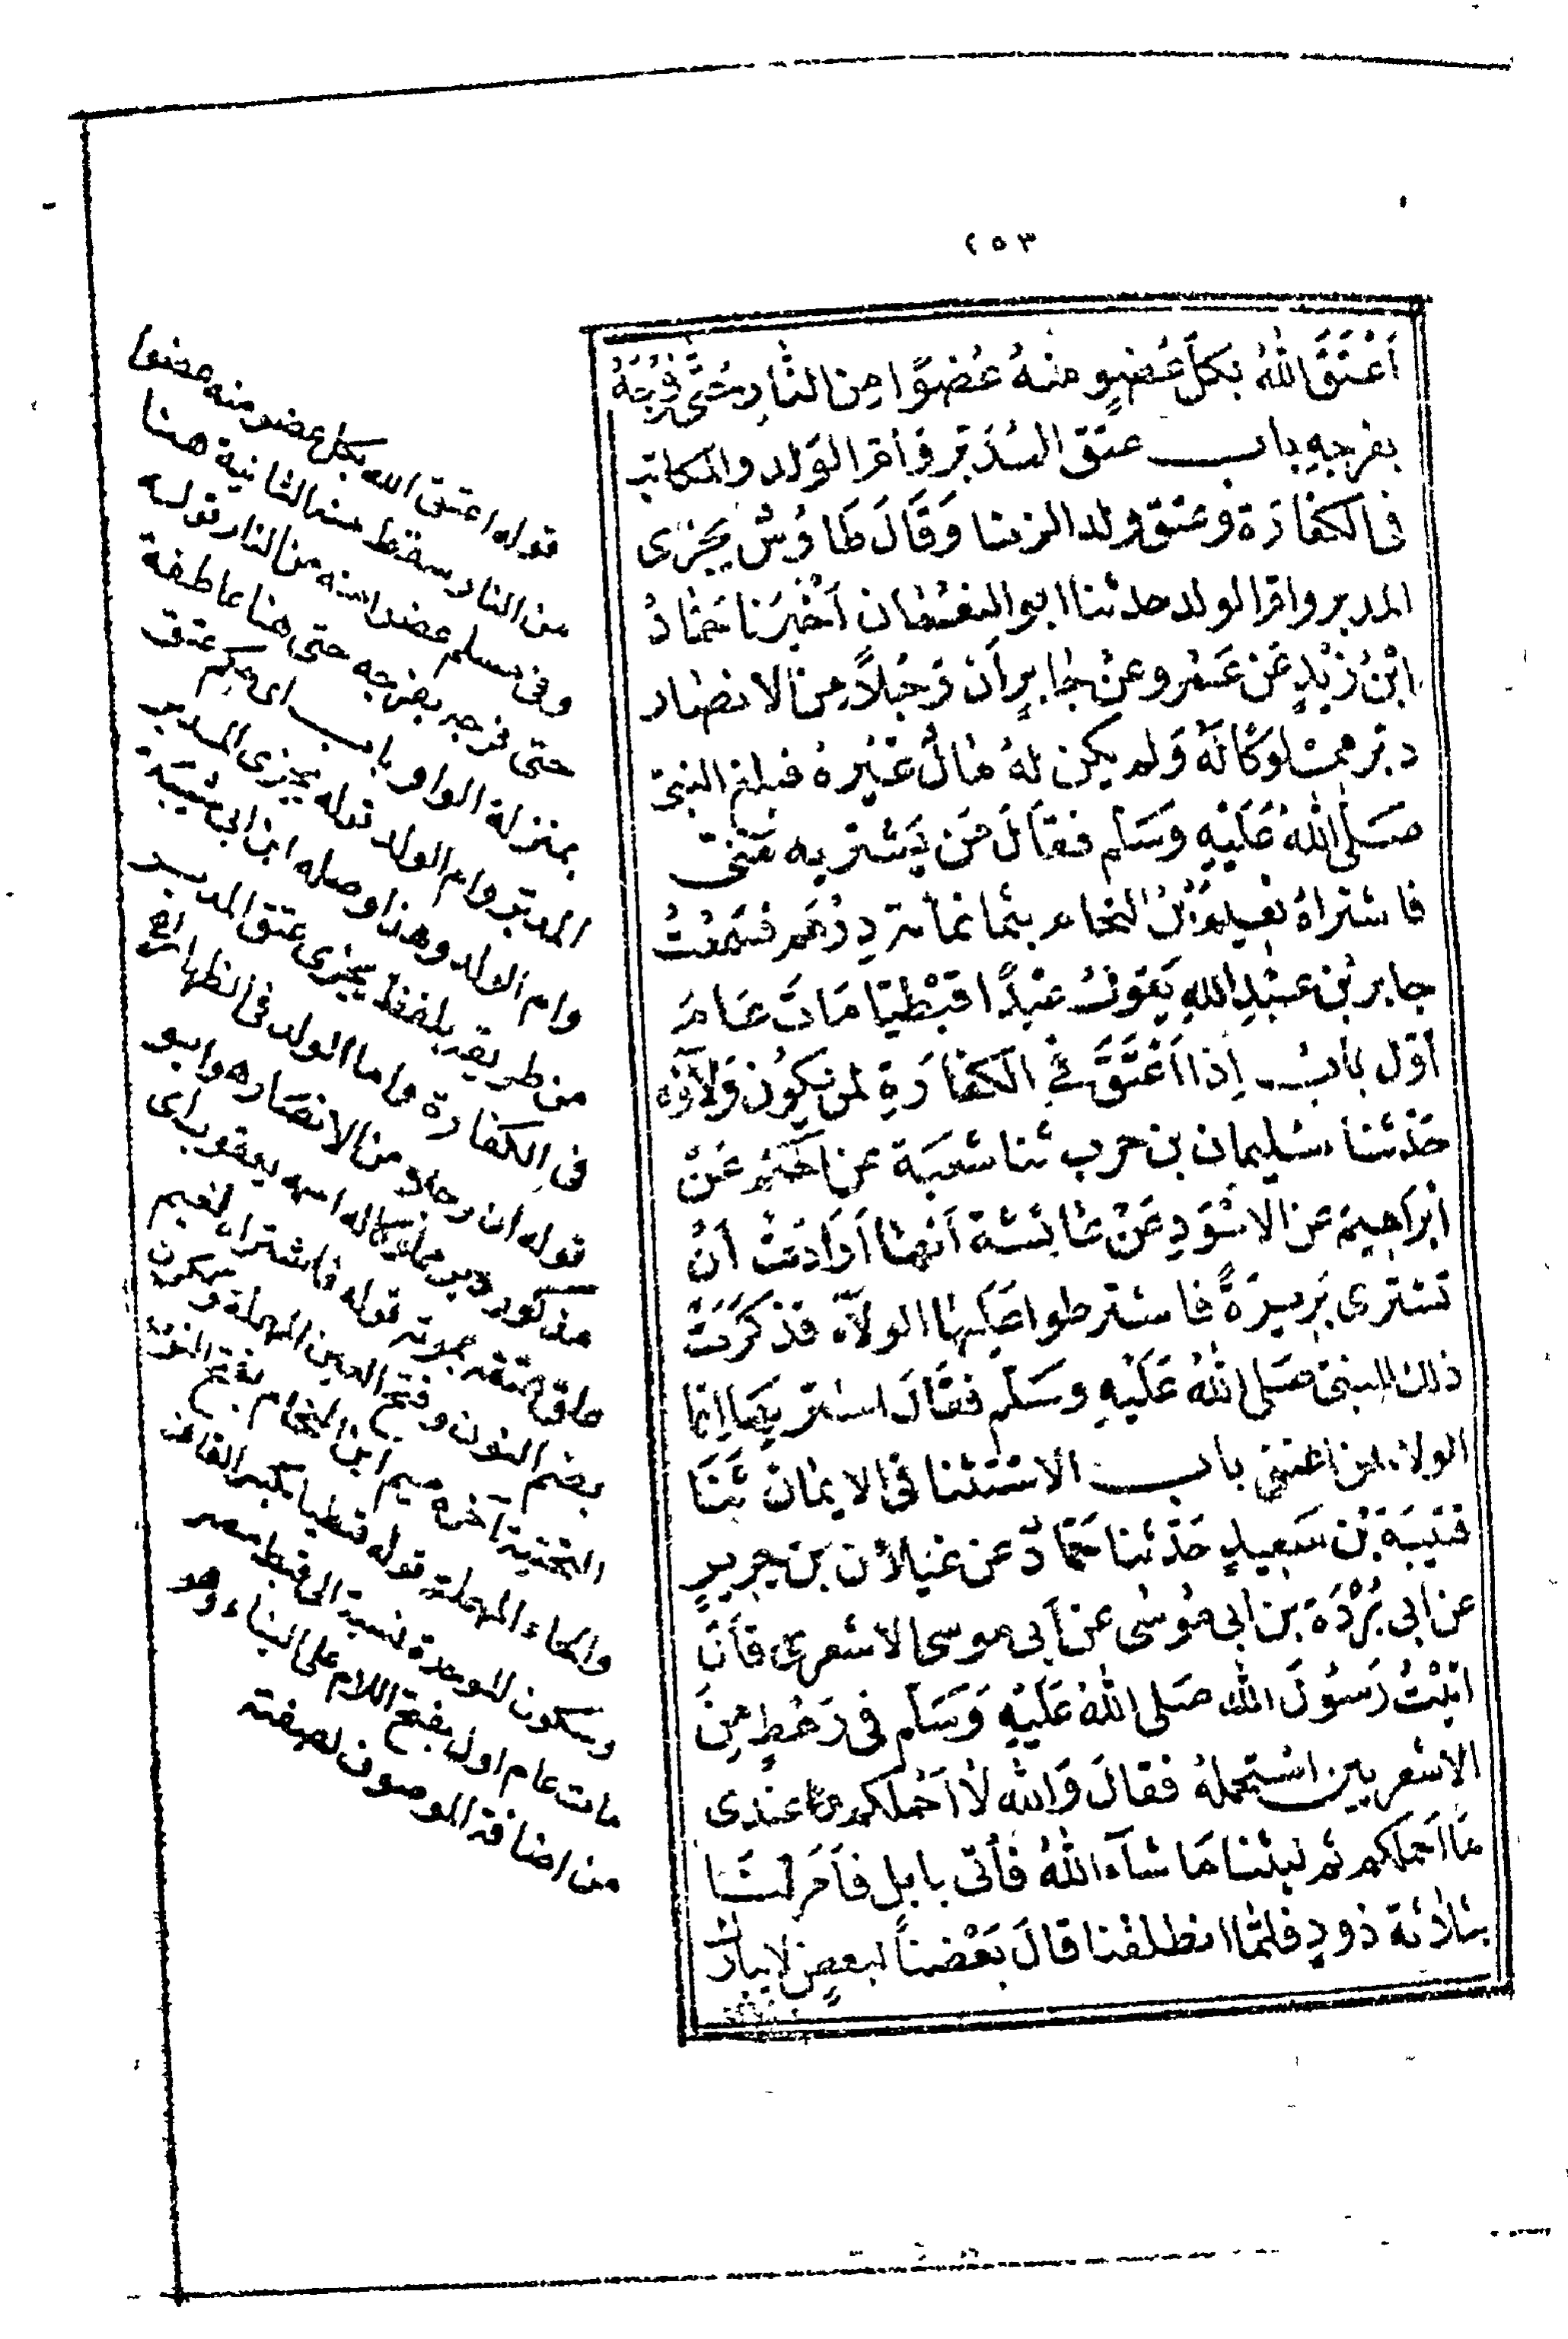 ٢٥٣
اَعْتَقَ اللهُ بكلّ عُضوٍ منهُ عُضوًا مِن النّارِ حَتّى فرْجَهُ
بفرجهِ باب عتق المُدَبّر وَأمّ الوَلد والمكاتب
فى الكفّارَة وعتق ولد الزنا وَقَالَ طَاوُسٌ يُجْزى
المدبر وامّ الولد حدثنا ابو النعمان اَخْبَرَنا حَمّادُ
ابْنُ زَيْدٍ عَن عَمْرو عنْ جَابِرٍ اَن رَجُلاً مِن الانصَار
دبّر ممْلوكًا لَهُ وَلم يكن لهُ مَالٌ غَيْرهُ فبلغ النبىّ
صَلى اللهُ عَلَيْهِ وَسَلم فقَالَ مَن يَشتريه مِنّى
فاشتراهُ نعيمُ بْنُ النحام بثمانمائة دِرْهَم فسَمْعْتُ
جابر بْن عبْدِ اللهِ يَقولُ عبْدًا قبْطيّا مَاتَ عَامَ
أوّل بابُ اِذا اَعْتَقَ فِي الكفّارَةِ لمن يَكُون وَلاَؤهُ
حَدّثنا سُليمان بن حَرب ثنا شعبَة عن الحَكم عَنْ
اَبْراهِيمَ عن الاسْوَدِ عَنْ عَائشة اَنهَا اَرَادَتْ اَنْ
تشترى بَرِيرَةَ فاشترطوا عليْهَا الولاَء فذكَرَتْ
ذلك للنبىّ صَلى اللهُ عَلَيْهِ وسَلم فقَالَ اشتريهَا انما
الولاء لمن اعتق باب الاسْتثنا فى الايمَان ثَنَا
قتيبَة بْن سَعِيدٍ حَدّثنا حَمّادٌ عن غيلاَن بن جريرٍ
عن ابى بُرْدَة بن ابى مُوسى عن اَبى موسى الاشعرى قاَلَ
اتيْتُ رَسُولَ الله صَلى اللهُ عَلَيْهِ وَسَلم فى رَهْطٍ مِنَ
الاشعريين اسْتحملهُ فقالَ وَالله لاَ اَحْملكم مَا عندى
مَا اَحملكم ثم لبثنا مَا شآءَ اللهُ فأتى بابِلٍ فاَمَرَ لنَا
بثلاثة ذودٍ فلمّا انطلقنا قالَ بَعْضنَا لبعضٍ لا يبارك
قوله اعتق الله بكل عضو منه عضوا
من النار سقط منه الثانية هنا
وفى مسلم عضوا منه من النار قوله
حتى فرجه بفرجه حتى هنا عاطفة
بمنزلة الواو باب اى حكم عتق
المدبر وام الولد قوله يجزى المدبر
وام الولد وهذا وصله ابن ابى شيبَة
من طريقه بلفظ يجزى عتق المدبر
فى الكفارة وام الولد فى الظهار الخ
قوله ان رجلا من الانصار هو ابو
مذكور دبر مملوكا له اسمه يعقوب اى
علق عتقه بموته قوله فاشتراه نعيم
بضم النون وفتح العين المهملة وسكون
التحتية آخره ميم ابن النحام بفتح النون
والحاء المهملة قوله قبطيا بكسر القاف
وسكون الموحدة نسبة الى قبط مصر
مات عام اول بفتح اللام على البناء وهو
من اضافة الموصوف لصفته